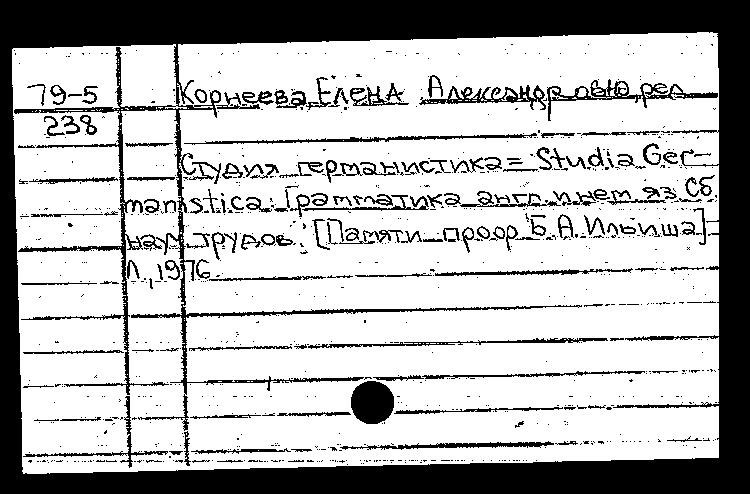 79-5 Корнеева, Елена Александровна, ред.
238
Студия германистика = Studia Ger-
manistica: Грамматика англ. и нем. яз. Сб.
науч. трудов. [Памяти проф. Б.А. Ильиша]
Л., 1976.